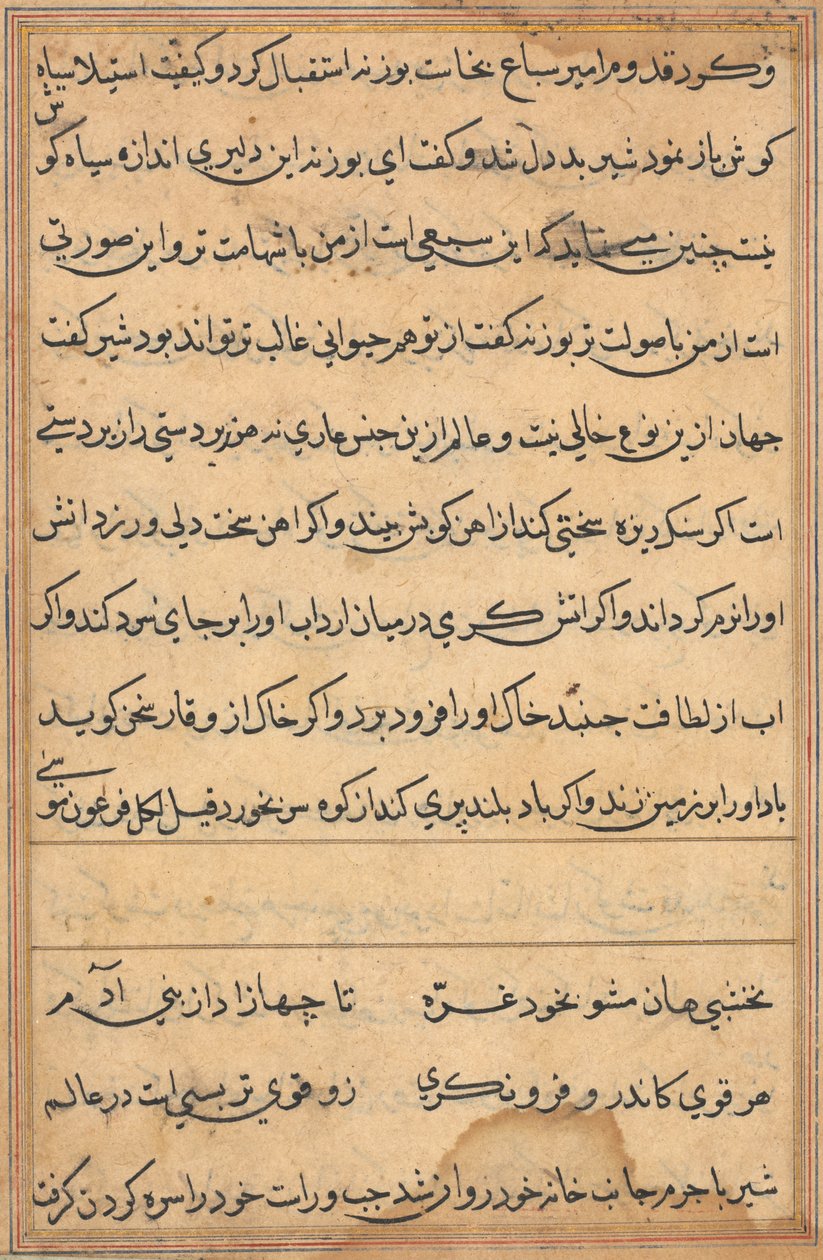 و کرد قدوم امیر سباع بخاست بوزنه استقبال کرد و کیفیت استیلا سیاه
کوش باز نمود شیر بد دل شد و کفت ای بوزنه این دلیری اندازه سیاه کوش
نیست چنین می نماید که این سبعی است از من با شهامت تر و این صورتی
است از من با صولت تر بوزنه کفت از تو هم حیوانی غالب تر تواند بود شیر کفت
جهان ازین نوع خالی نیست و عالم ازین جنس عاری نه هر زبردستی را زبردستی
است اکر سنک ریزه سختی کند از اهن کوبش بیند و اکر اهن سخت دلی ورزد اتش
او را نرم کرداند و اکر اتش کرمی در میان ارد اب او را بر جای سرد کند و اکر
اب از لطافت جنبد خاک او را فرو برد و اکر خاک از وقار سخن کوید
باد او را بر زمین زند و اکر باد بلند پری کند از کوه سر بخورد قیل لکل فرعون موسی
نخشبی هان مشو بخود غرّه تا چها زاد از بنی آدم
هر قوی کاندرو فرو نکری زو قوی تر بسی است در عالم
شیر با جرم جانب خانه خود روان شد چپ و راست خود را سره کردن کرفت